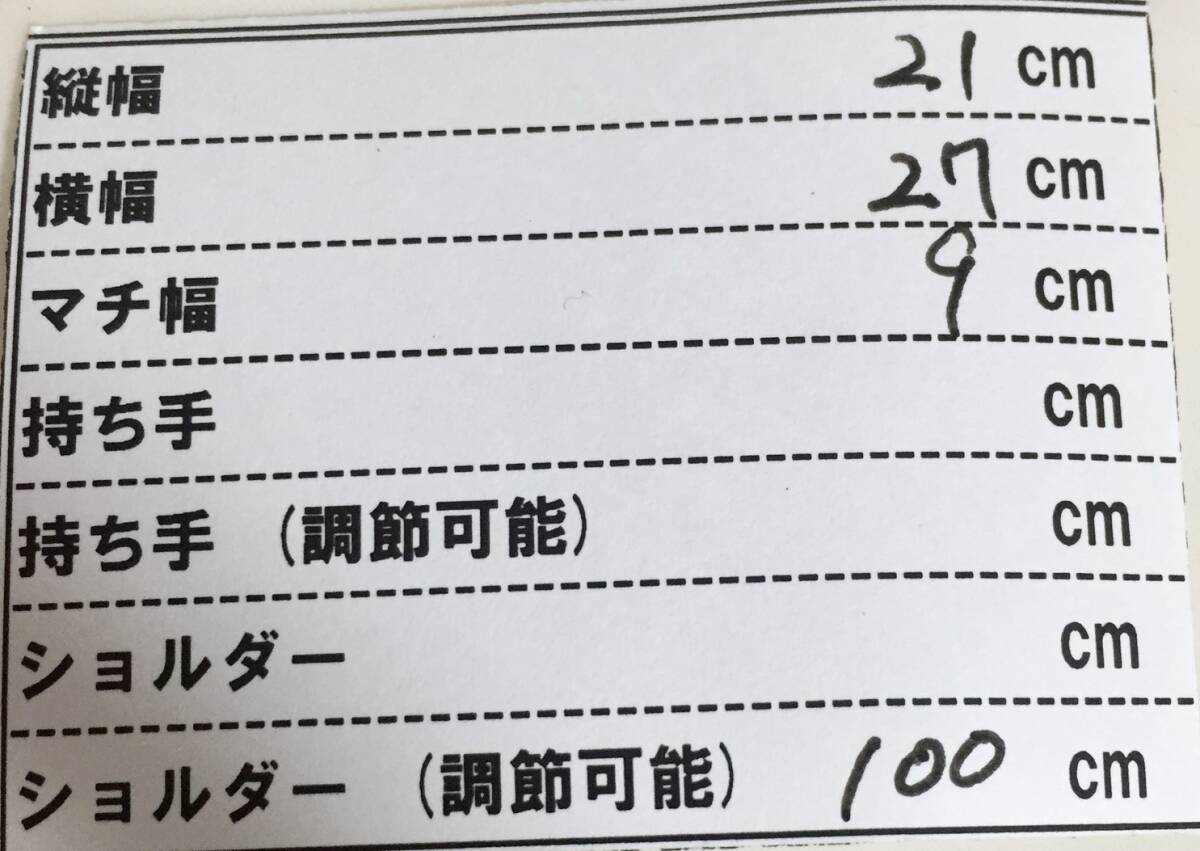 縦幅 21 cm
横幅 27 cm
マチ幅 9 cm
持ち手 cm
持ち手 (調節可能) cm
ショルダー cm
ショルダー (調節可能) 100 cm